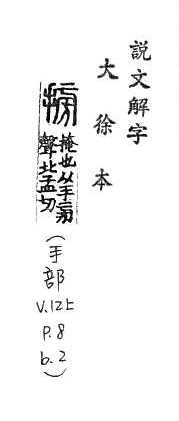 説文解字
大徐本
搒
掩也从手旁
聲北孟切
(手部
V.12上
P.8
b.2)